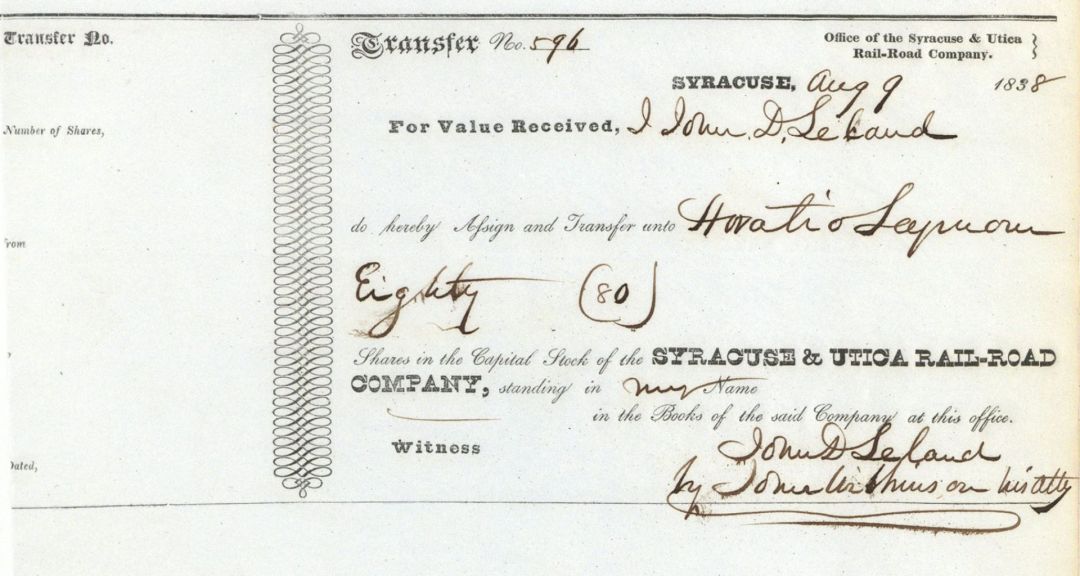 Transfer No.
Number of Shares,
from
Dated,
Transfer No. 596
Office of the Syracuse & Utica
Rail-Road Company.
SYRACUSE, Aug 9 1838
For Value Received, I John. D. Leland
do hereby Assign and Transfer unto Horatio Seymour
Eighty (80)
Shares in the Capital Stock of the SYRACUSE & UTICA RAIL-ROAD
COMPANY, standing in my Name
in the Books of the said Company at this office.
Witness
John D Leland
by John Wilkinson his atty